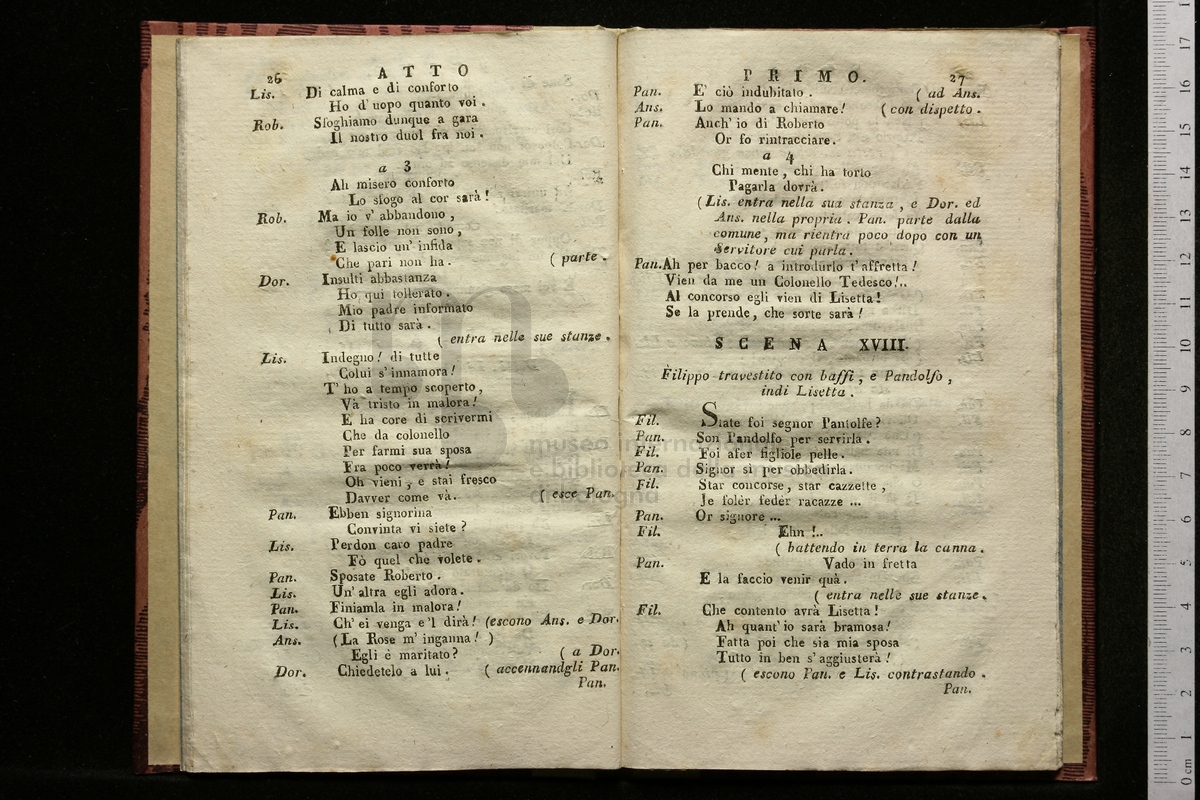 26 ATTO
Lis. Di calma e di conforto
Ho d' uopo quanto voi.
Rob. Sfoghiamo dunque a gara
Il nostro duol fra noi.
a 3
Ah misero conforto
Lo sfogo al cor sarà!
Rob. Ma io v' abbandono,
Un folle non sono,
E lascio un' infida
Che pari non ha. (parte.
Dor. Insulti abbastanza
Ho qui tollerato.
Mio padre informato
Di tutto sarà.
( entra nelle sue stanze.
Lis. Indegno! di tutte
Colui s' innamora!
T' ho a tempo scoperto,
Và tristo in malora!
E ha core di scrivermi
Che da colonello
Per farmi sua sposa
Fra poco verrà!
Oh vieni, e stai fresco
Davver come và. ( esce Pan.
Pan. Ebben signorina
Convinta vi siete?
Lis. Perdon caro padre
Fò quel che volete.
Pan. Sposate Roberto.
Lis. Un' altra egli adora.
Pan. Finiamla in malora!
Lis. Ch' ei venga e 'l dirà! (escono Ans. e Dor.
Ans. (La Rose m' inganna! )
Egli è maritato? ( a Dor.
Dor. Chiedetelo a lui. ( accennandgli Pan.
Pan.
PRIMO. 27
Pan. E' ciò indubitato. ( ad Ans.
Ans. Lo mando a chiamare! ( con dispetto.
Pan. Anch' io di Roberto
Or fo rintracciare.
a 4
Chi mente, chi ha torto
Pagarla dovrà.
(Lis. entra nella sua stanza, e Dor. ed
Ans. nella propria. Pan. parte dalla
comune, ma rientra poco dopo con un
Servitore cui parla.
Pan. Ah per bacco! a introdurlo t' affretta!
Vien da me un Colonello Tedesco!..
Al concorso egli vien di Lisetta!
Se la prende, che sorte sarà!
SCENA XVIII.
Filippo travestito con baffi, e Pandolfo,
indi Lisetta.
Fil. State foi segnor Pantolfe?
Pan. Son Pandolfo per servirla.
Fil. Foi afer figliole pelle.
Pan. Signor sì per obbedirla.
Fil. Star concorse, star cazzette,
Je folèr fedèr racazze ...
Pan. Or signore ...
Fil. Ehn !..
( battendo in terra la canna.
Pan. Vado in fretta
E la faccio venir quà.
( entra nelle sue stanze.
Fil. Che contento avrà Lisetta!
Ah quant' io sarà bramosa!
Fatta poi che sia mia sposa
Tutto in ben s' aggiusterà!
( escono Pan. e Lis. contrastando.
Pan.
museo internazionale
e biblioteca della musica
di bologna